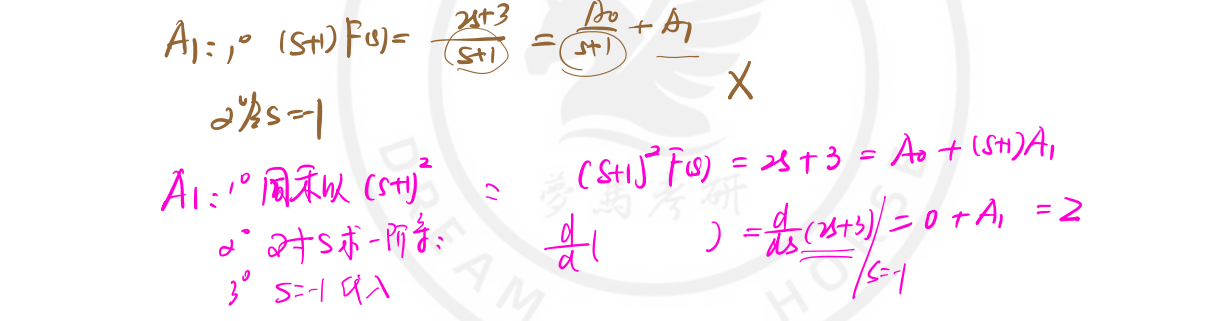 A₁: 1° (s+1)F(s) = (2s+3)/(s+1) = A₀/(s+1) + A₁
2° 令s=-1 ×
A₁: 1° 同乘以 (s+1)² = (s+1)²F(s) = 2s+3 = A₀ + (s+1)A₁
2° 对s求一阶导: d/d( ) = d/ds(2s+3)|s=-1 = 0 + A₁ = 2
3° s=-1 代入
梦马考研
DREAM HORSE